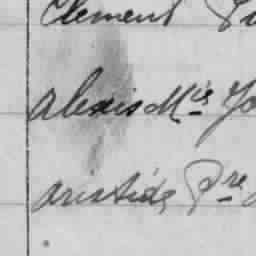 Clement
alexis Mie
aristide Pre